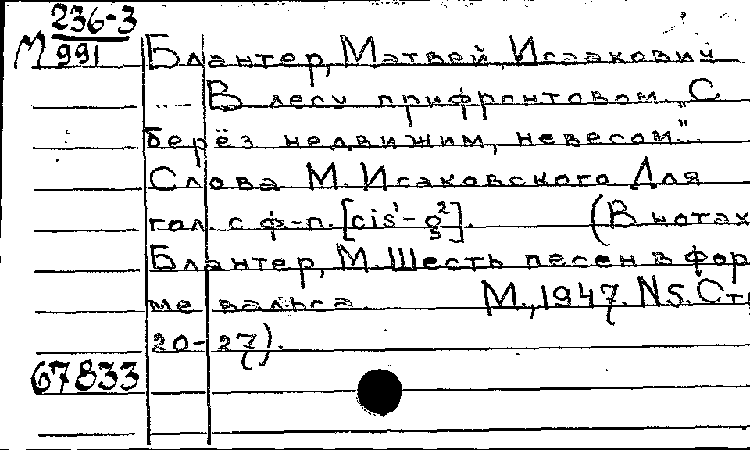 236-3
М 991 Блантер, Матвей Исаакович
В лесу прифронтовом. „С
берёз недвижим, невесом".
Слова М. Исаковского Для
гол. с ф-п. [cis¹-g²]. (В нотах
Блантер, М. Шесть песен в фор
ме вальса. М., 1947. N5. Ст
20-27).
67833